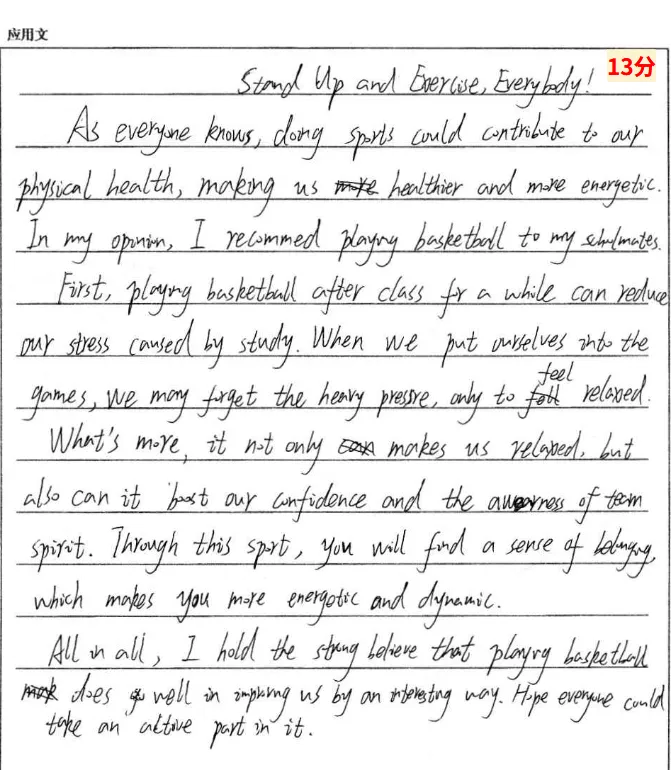 应用文
13分
Stand Up and Exercise, Everybody!
As everyone knows, doing sports could contribute to our
physical health, making us healthier and more energetic.
In my opinion, I recommed playing basketball to my schoolmates.
First, playing basketball after class for a while can reduce
our stress caused by study. When we put ourselves into the
feel
games, we may forget the heavy pressre, only to relaxed.
What's more, it not only makes us relaxed, but
also can it boost our confidence and the of team
spirit. Through this sport, you will find a sense of belonging,
which makes you more energetic and dynamic.
All in all, I hold the strong believe that playing basketball
does well in improving us by an interesting way. Hope everyone could
take an active part in it.